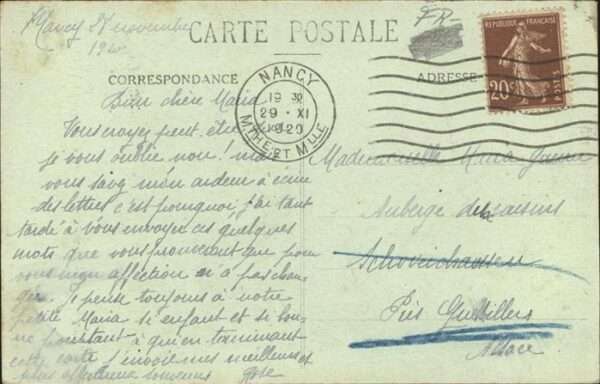 Nancy 28 novembre
192
CARTE POSTALE
FR-
REPUBLIQUE FRANÇAISE
20c
POSTES
CORRESPONDANCE
ADRESSE
NANCY
19 30
29 · XI
1920
MTHE ET MLLE
Bien chère Maria
Vous croyez peut être
je vous oublie non! mais
vous savez mon ardeur à écrire
des lettres c'est pourquoi j'ai tant
tardé à vous envoyer ces quelques
mots que vous prouveront que pour
vous mon affection n'a pas chan-
gée. Je pense toujours à notre
petite Maria si enfant et si bon-
ne pourtant à qui en terminant
cette carte j'envoie mes meilleurs et
plus affectueux souvenirs
Mademoiselle Maria
Auberge des
Près Guebwiller
Alsace